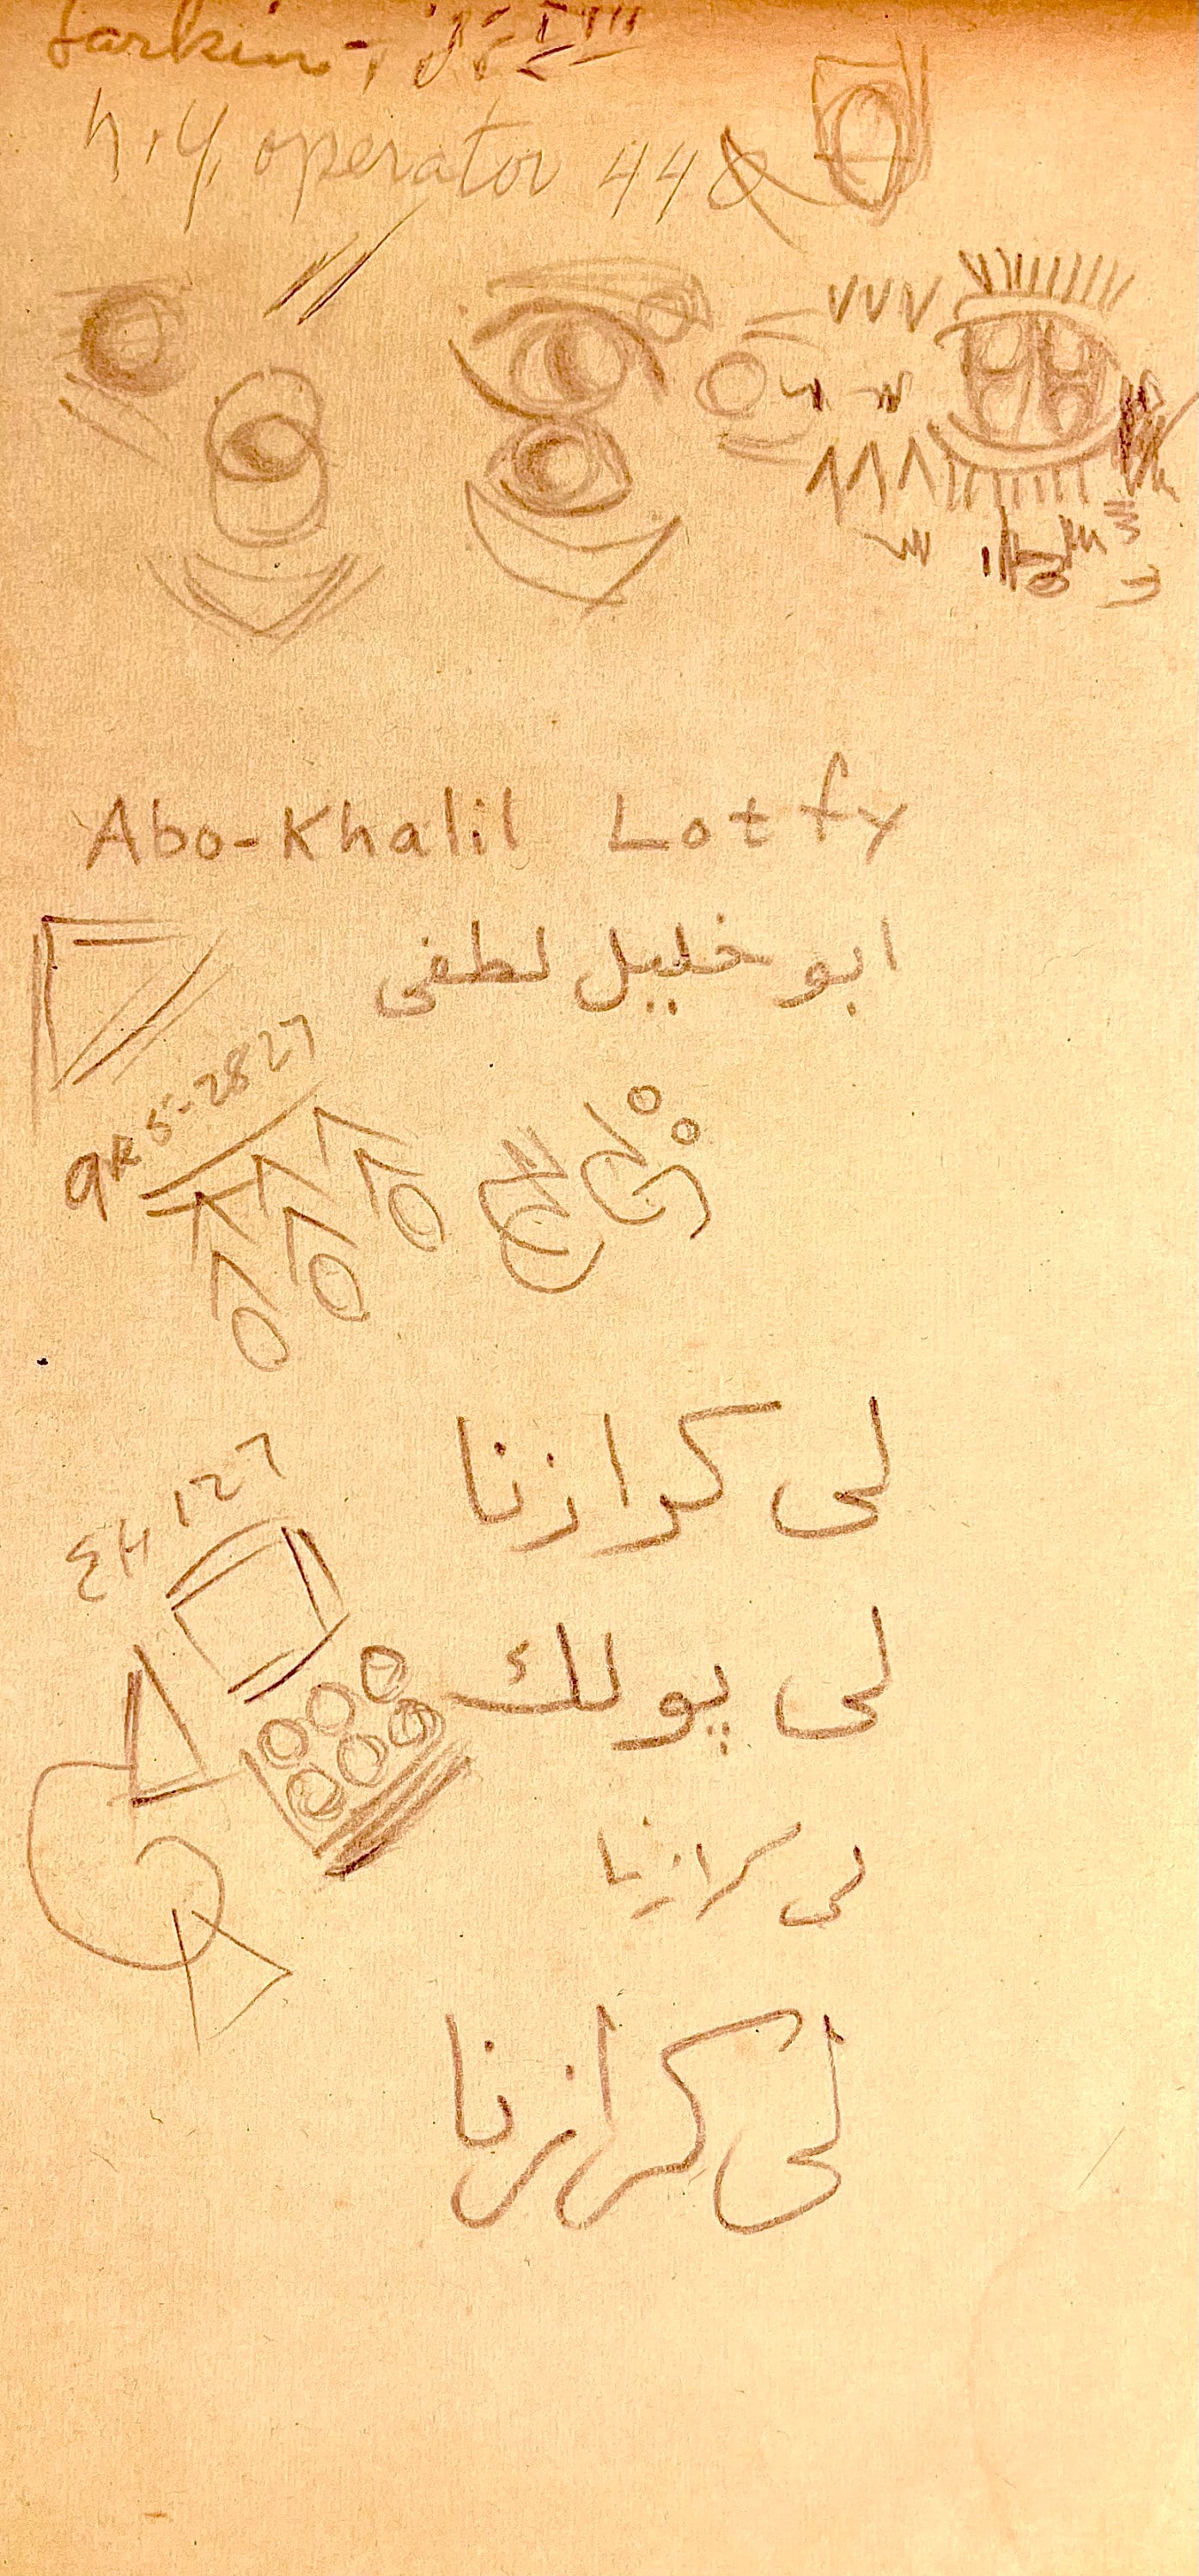 Larkin
N.Y. operator 448
Abo-Khalil Lotfy
ابو خليل لطفى
GR 5-2827
لى كرازنا
EH 127
لى پولك
لى كرازنا
لى كرازنا